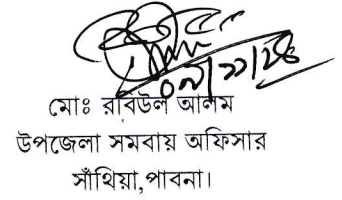 ০৭/১১/২৪
মোঃ রবিউল আলম
উপজেলা সমবায় অফিসার
সাঁথিয়া,পাবনা।